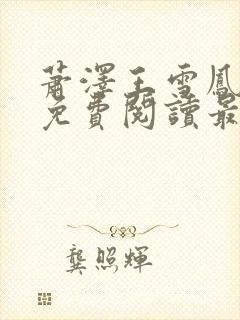 蕭澤王雪鳳
免費閱讀最
龔照輝